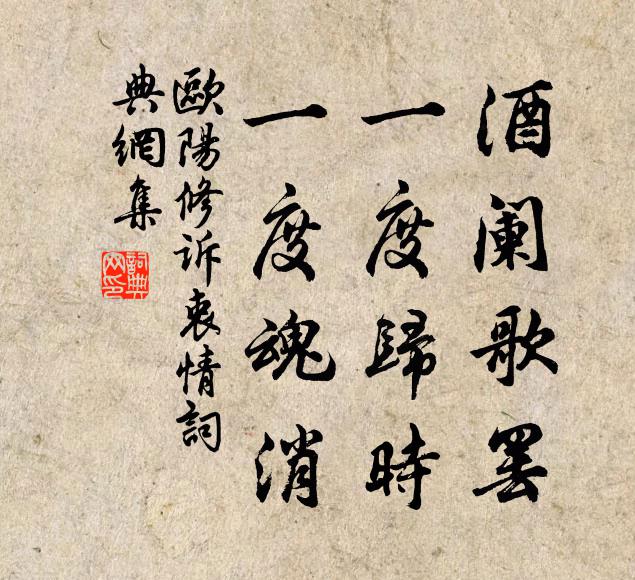 酒阑歌罢
一度歸時
一度魂消
歐陽修诉衷情詞
典網集
詞典網印